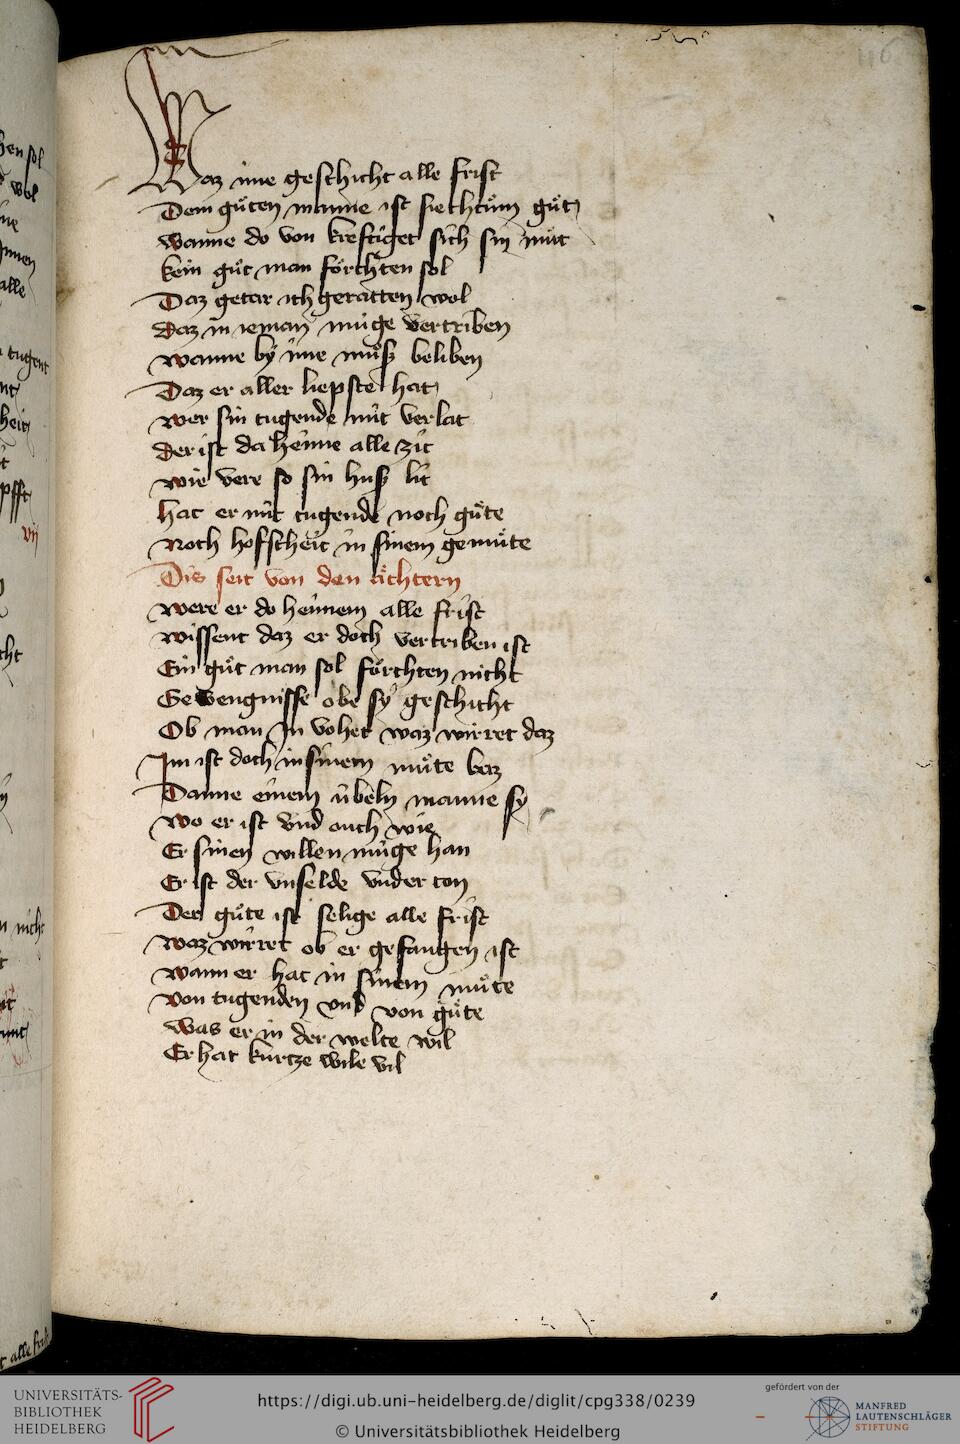 116
Waz ime geschicht alle frist
Dem gůten manne ist siechtům gůt
wanne do von kreftiget sich sin můt
kein gůt man förchten sol
Daz getar ich geratten wol
Daz in ieman muge vertriben
wanne by ime můß beliben
Daz er aller liepste hat
wer sin tugende nit verlat
Der ist da heime alle zit
wie vere so sin huß lit
hat er nit tugende noch gůte
Noch hofscheit in sinem gemůte
Dis seit von den ächtern
were er do heimem alle frist
wissent daz er doch vertriben ist
Ein gůt man sol förchten nicht
Gevengnisse obe sy geschicht
Ob man In vohet waz wirret daz
Im ist doch in sinem můte baz
Danne einem úbeln manne sy
wo er ist vnd ouch wie
Er sinen willen muge han
Er ist der vnselde vnder ton
Der gůte ist selige alle frist
waz wirret ob er gefangen ist
wann er hat in sinem můte
von tugenden vnd von gůte
was er in der welte wil
Er hat kurtze wile vil
hen sol
wol
alle
tugent
heit
vij
nicht
UNIVERSITÄTS-
BIBLIOTHEK
HEIDELBERG
https://digi.ub.uni-heidelberg.de/diglit/cpg338/0239
© Universitätsbibliothek Heidelberg
gefördert von der
MANFRED
LAUTENSCHLÄGER
STIFTUNG